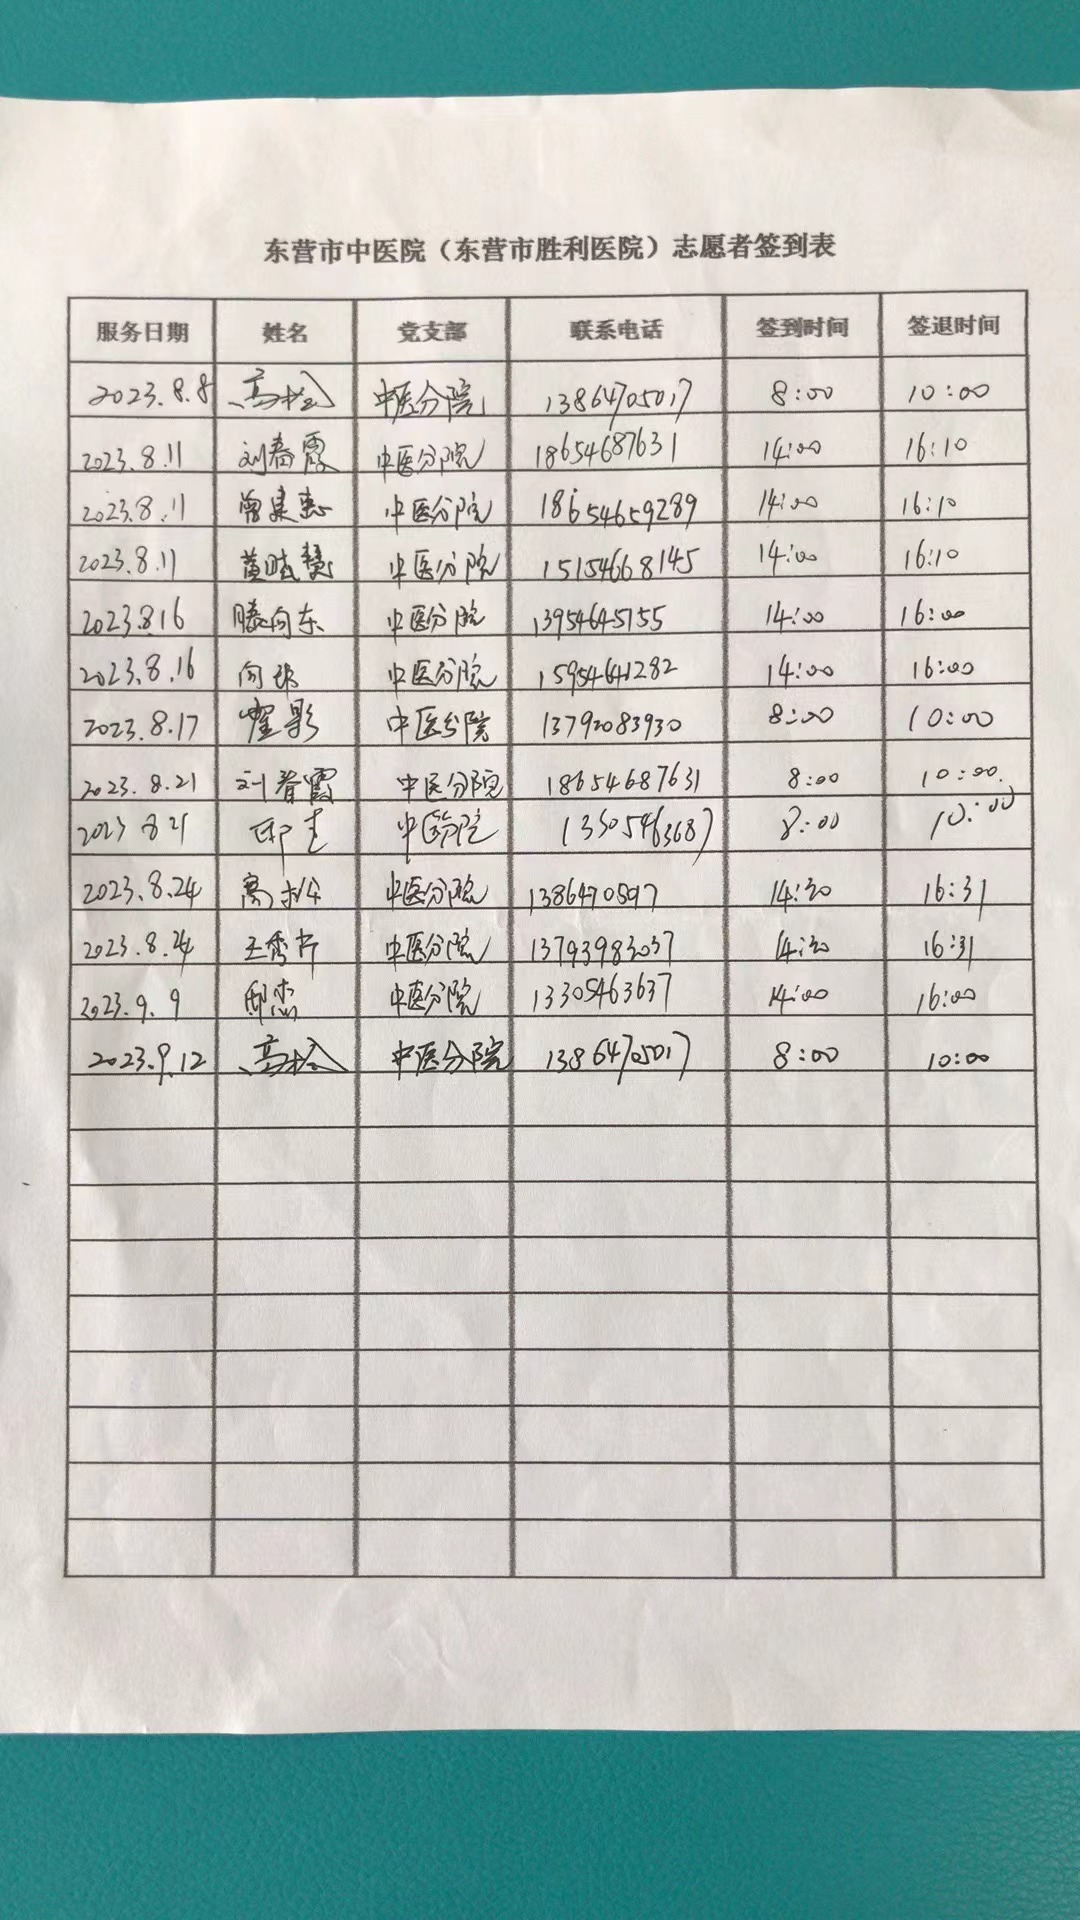 东营市中医院（东营市胜利医院）志愿者签到表
服务日期 姓名 党支部 联系电话 签到时间 签退时间
2023.8.8 高松 中医分院 13864705017 8:00 10:00
2023.8.11 刘春霞 中医分院 18654687631 14:00 16:10
2023.8.11 曾建惠 中医分院 18654659289 14:00 16:10
2023.8.11 黄 慧 中医分院 15154668145 14:00 16:10
2023.8.16 滕向东 中医分院 13954645755 14:00 16:00
2023.8.16 向 中医分院 15954641282 14:00 16:00
2023.8.17 翟影 中医分院 13792083930 8:00 10:00
2023.8.21 刘春霞 中医分院 18654687631 8:00 10:00
2023 8 21 邸 中医分院 13305463687 8:00 10:00
2023.8.24 高松 中医分院 8:00 14:30 16:31
2023.8.24 王秀芹 中医分院 13793983037 14:30 16:31
2023.9.9 邸杰 中医分院 13305463637 14:00 16:00
2023.9.12 高松 中医分院 13864705017 8:00 10:00